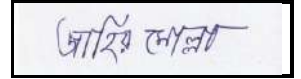 জাহির মোল্লা